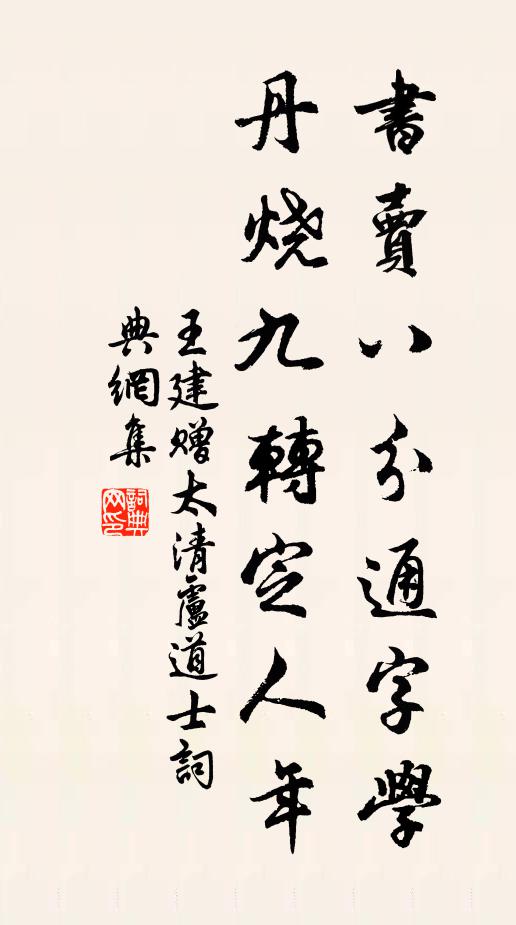 書賣八分通字學
丹燒九轉定人年
王建贈太清盧道士詞
典網集
詞典
网印